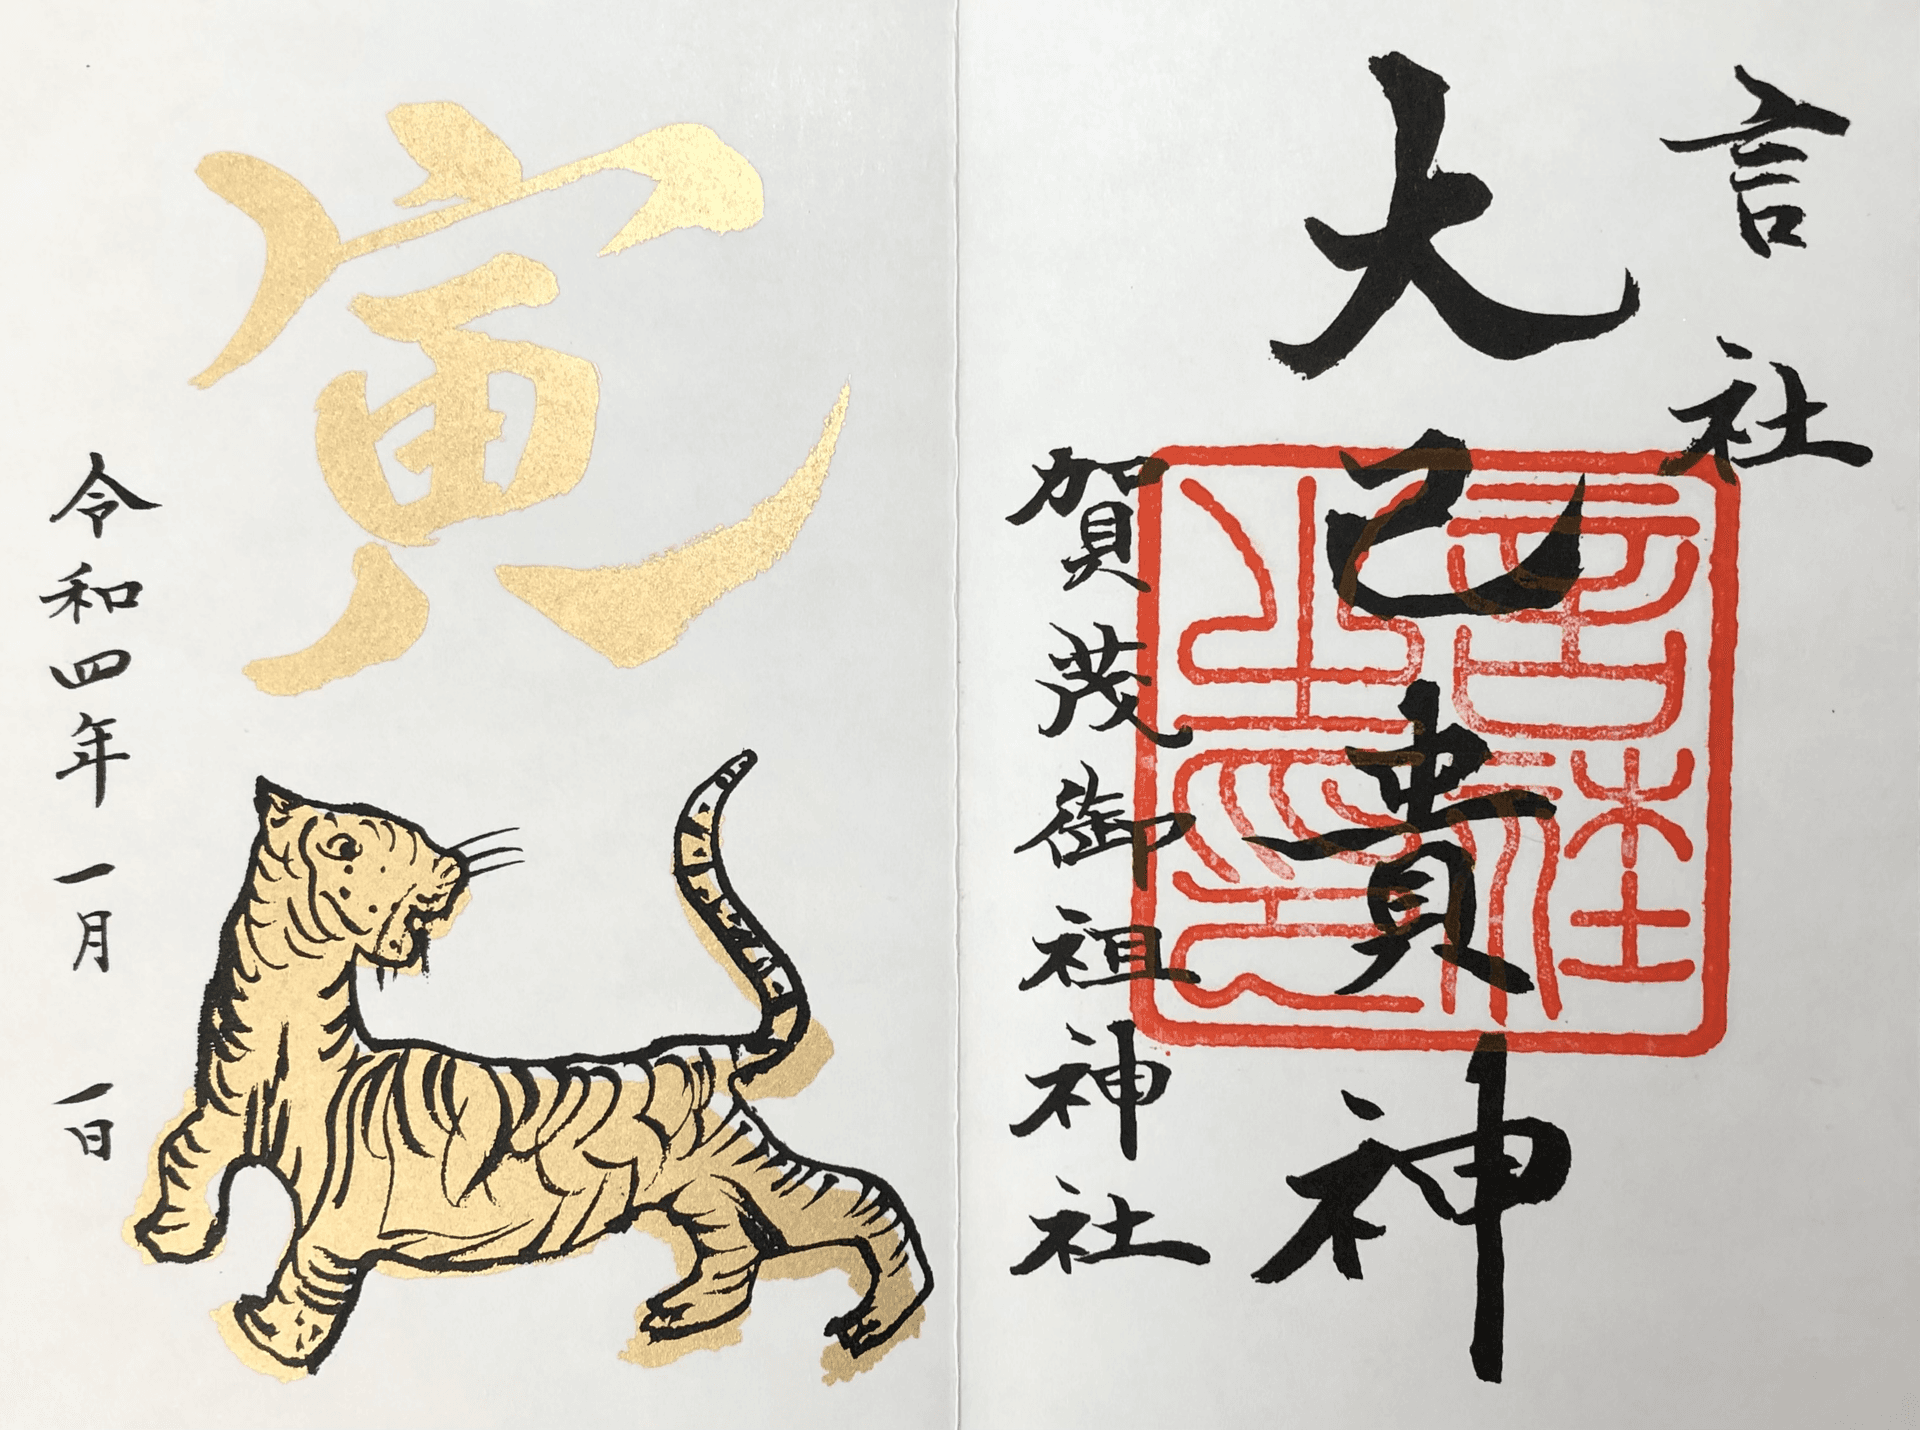 言社
大己貴神
賀茂御祖神社
言社之印
寅
令和四年一月一日